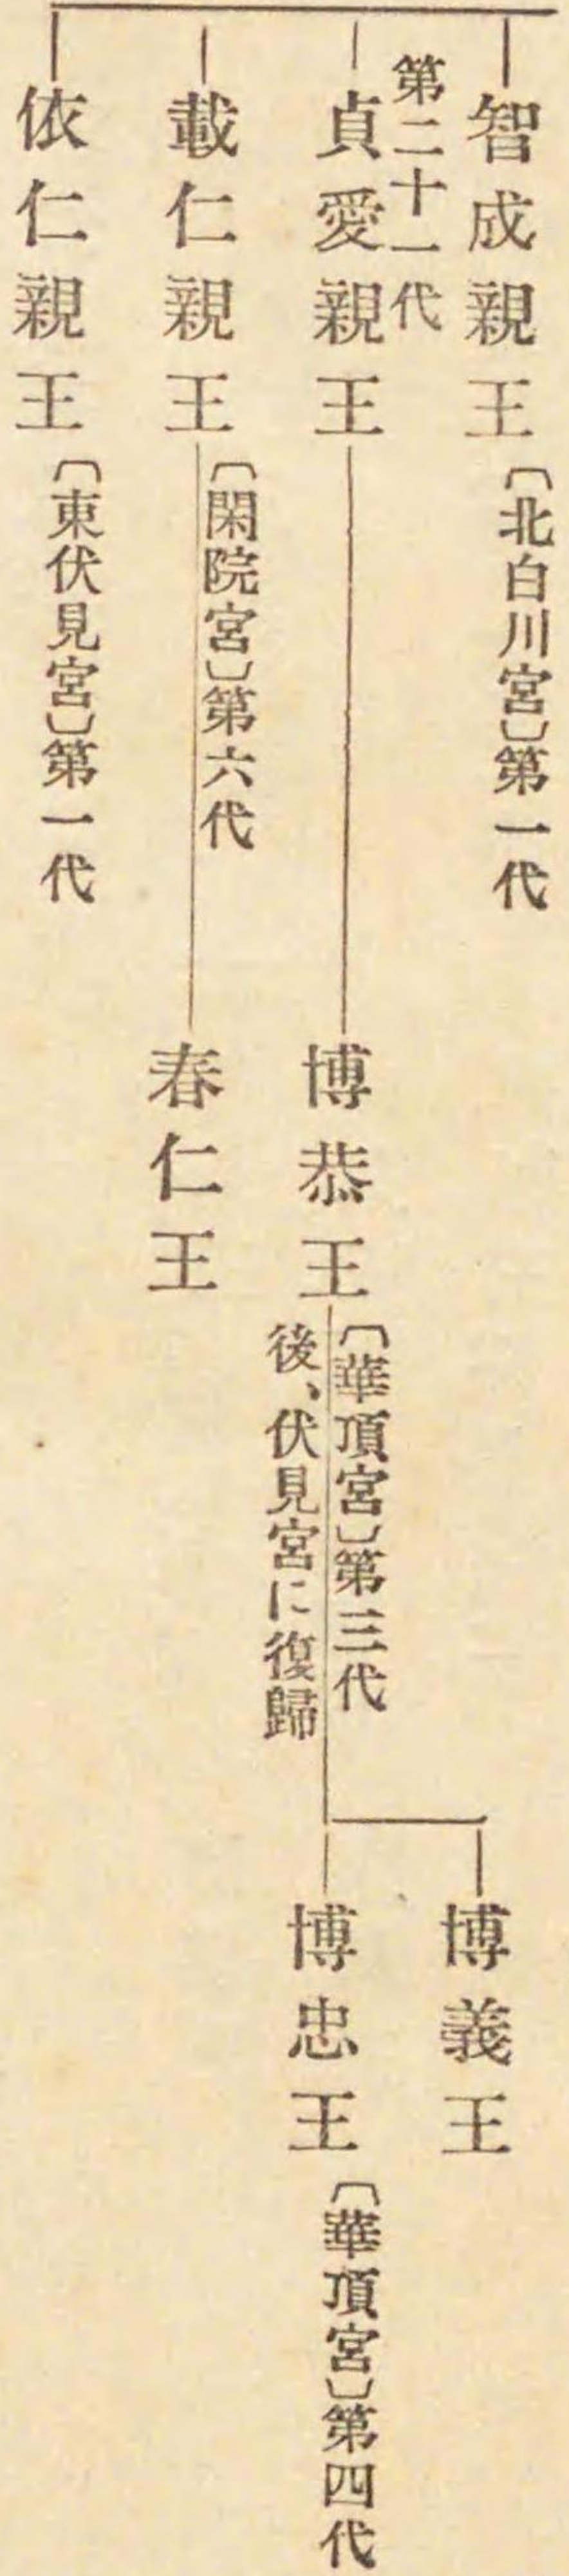 智成親王
〔北白川宮〕第一代
第二十一代
貞愛親王
博恭王
〔華頂宮〕第三代
後、伏見宮に復歸
博義王
博忠王
〔華頂宮〕第四代
載仁親王
〔閑院宮〕第六代
春仁王
依仁親王
〔東伏見宮〕第一代